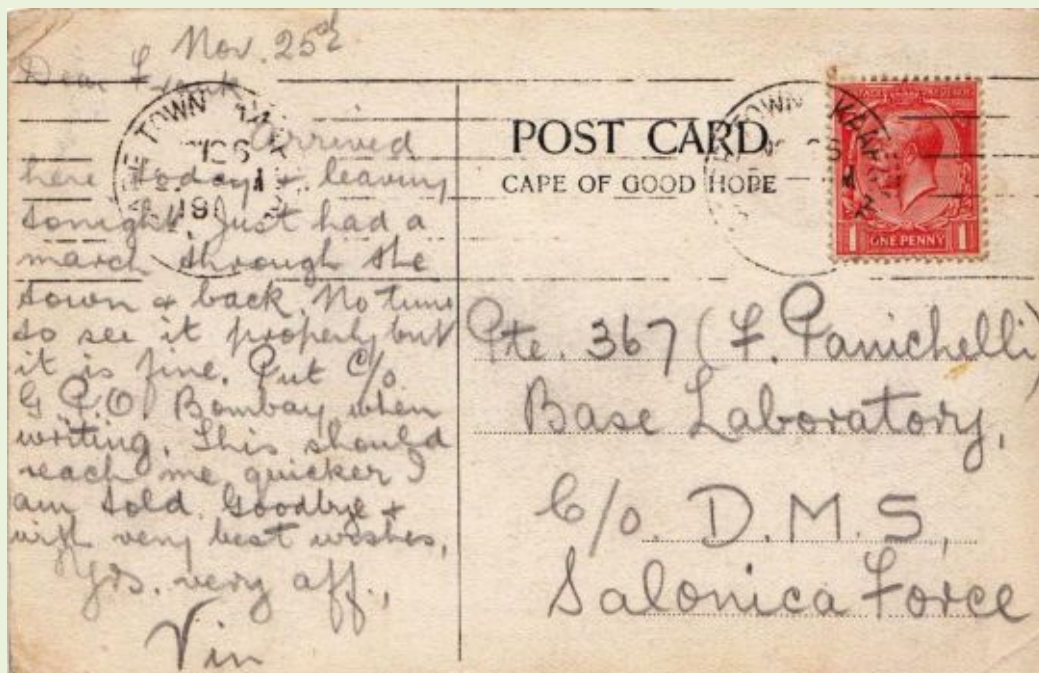 Nov. 25th
Dear Frank
Arrived
here today & leaving
tonight. Just had a
march through the
town & back. No time
to see it properly but
it is fine. Put C/o
G.P.O. Bombay when
writing. This should
reach me quicker I
am told. Goodbye &
with very best wishes,
Yrs. very aff.,
Vin
TOWN
191
POST CARD
CAPE OF GOOD HOPE
TOWN KAAP
1 ONE PENNY 1
Pte. 367 (F. Panichelli)
Base Laboratory,
C/o. D.M.S,
Salonica Force